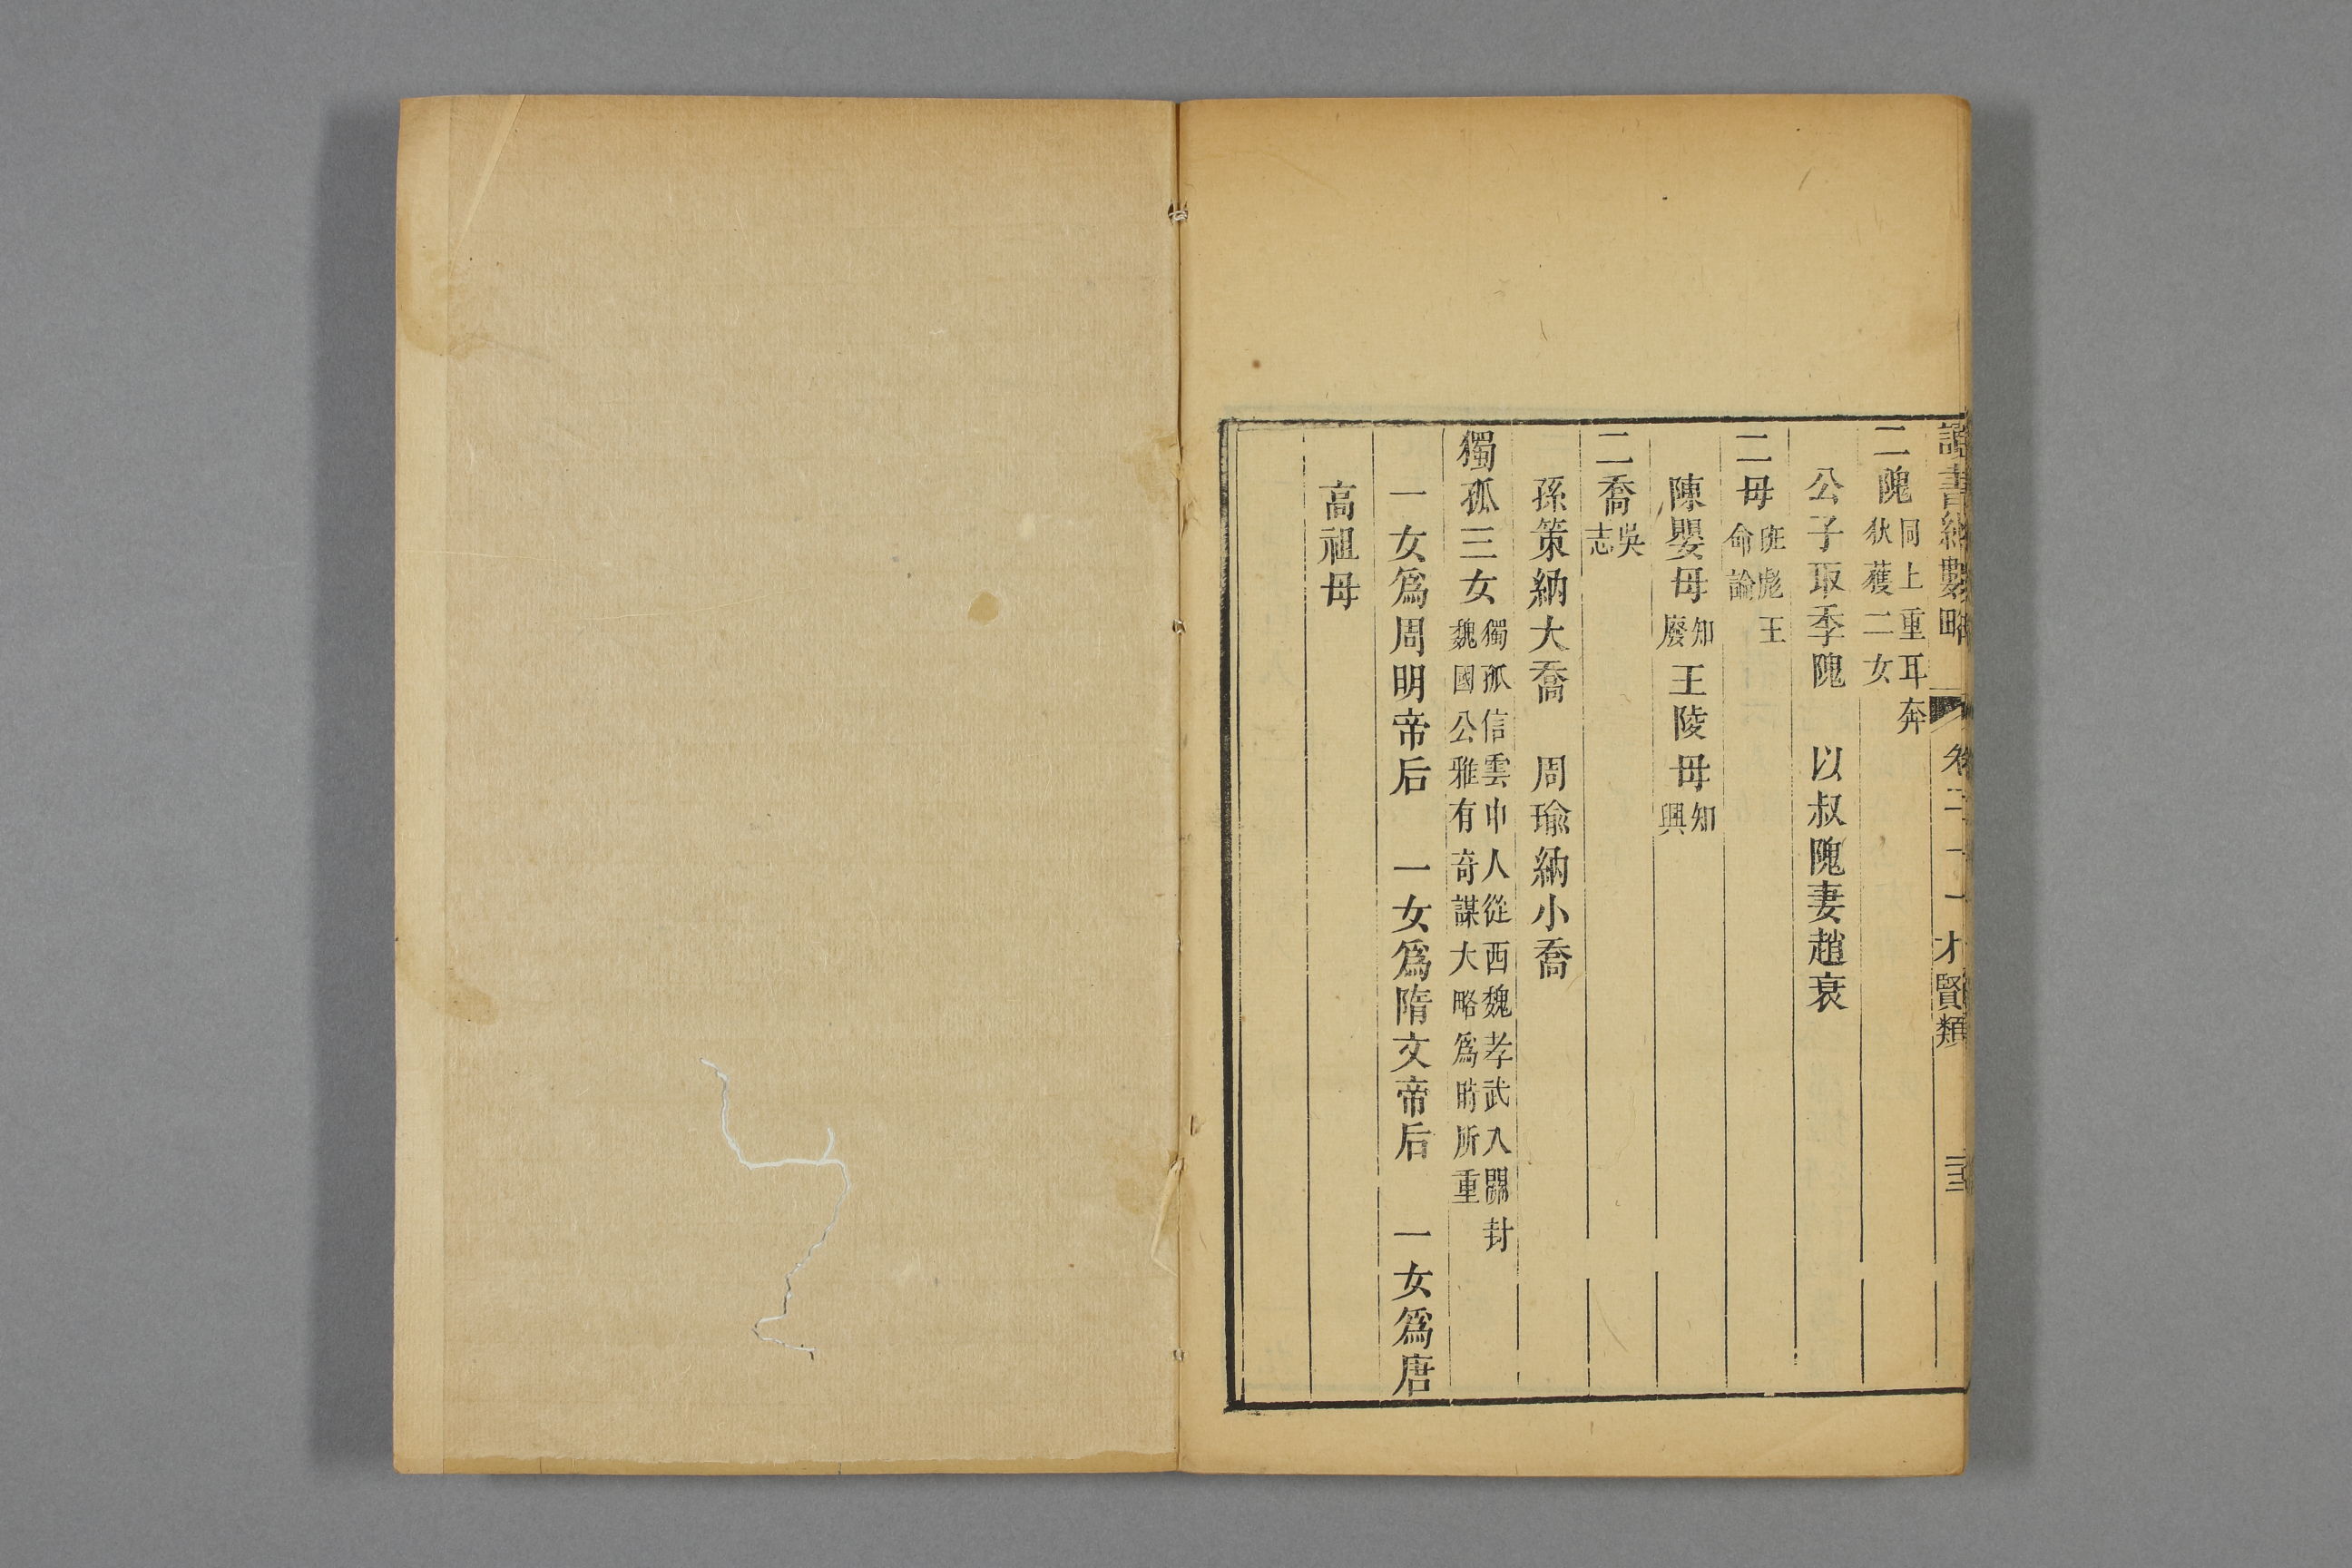 讀書紀數略 卷二十一 才賢類 三三
二隗 同上重耳奔狄獲二女
公子取季隗 以叔隗妻趙衰
二母 班彪王命論
陳嬰母 知廢 王陵母 知興
二喬 吳志
孫策納大喬 周瑜納小喬
獨孤三女 獨孤信雲中人從西魏孝武入關封魏國公雅有奇謀大略爲時所重
一女爲周明帝后 一女爲隋文帝后 一女爲唐
高祖母